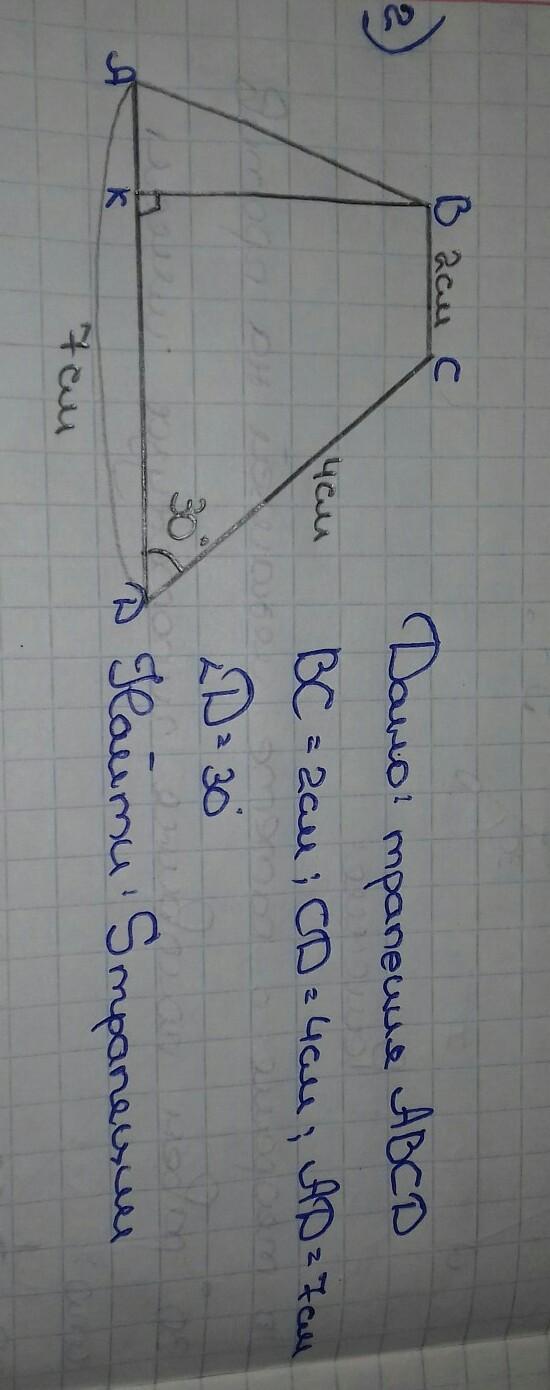 2)
B 2см C
4см
A K 30° D
7см
Дано: трапеция ABCD
BC = 2см; CD = 4см; AD = 7см
∠D = 30°
Найти: Sтрапеции